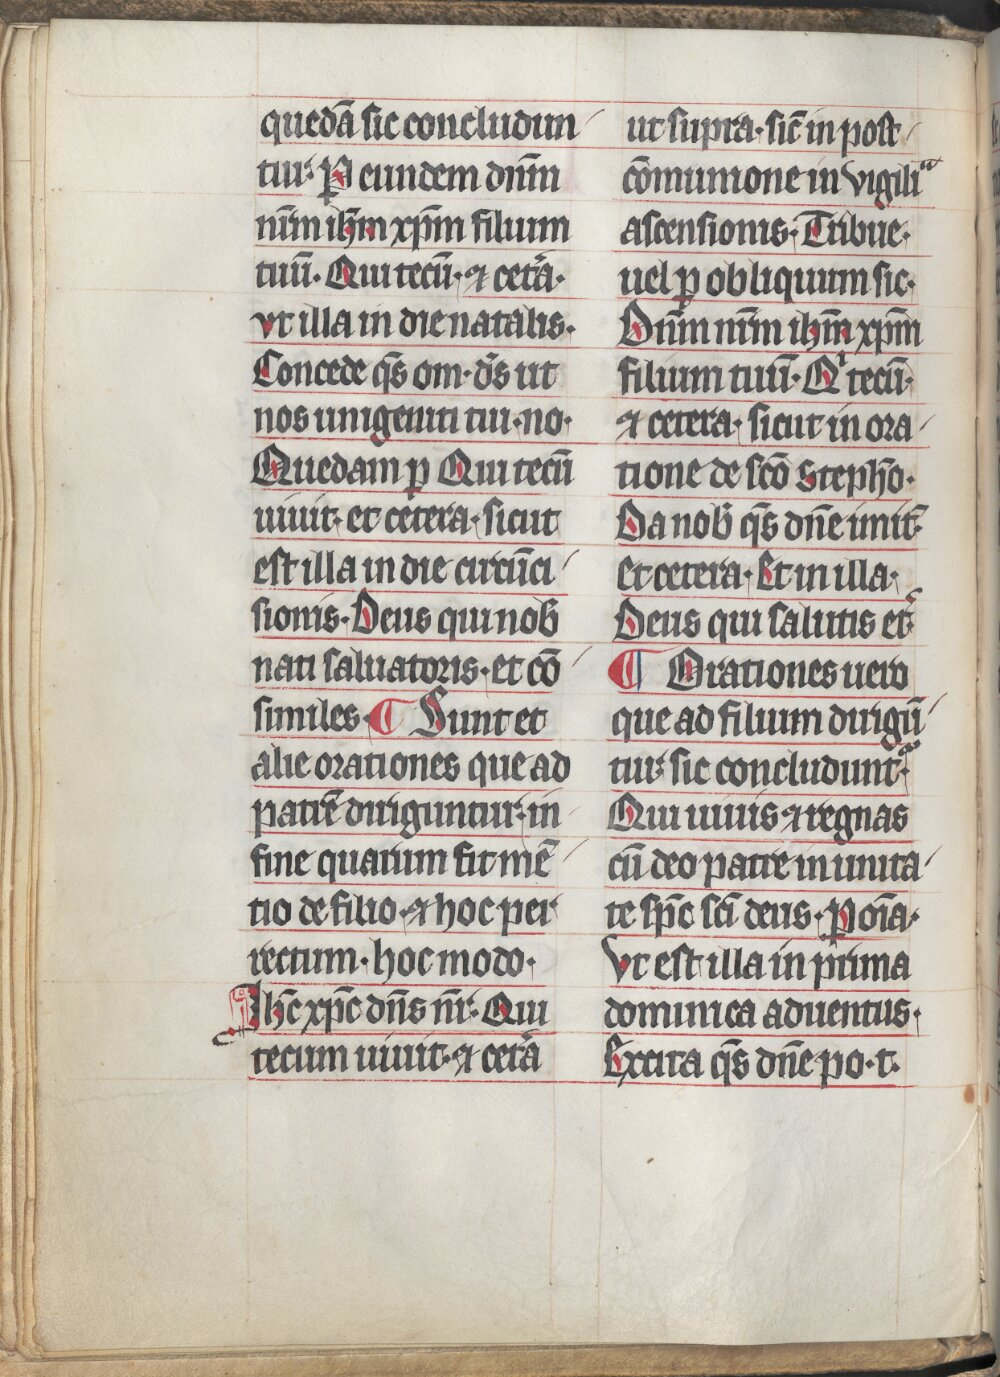 quedā sic concludun
tur· ꝑ eundem dn̄m
nr̄m ih̄m xp̄m filium
tuū· Qui tecū· ⁊ cet̄a·
vt illa in die natalis·
Concede qs̄ om· ds̄ ut
nos unigeniti tui·no·
Quedam ꝑ Qui tecū
uiuit· et cetera· sicut
est illa in die circūci
sionis· Deus qui nob̄
nati saluatoris· et cō
similes· ¶ Sunt et
alie orationes que ad
patrē diriguntur· in
fine quarum fit mē
tio de filio· ⁊ hoc per
rectum· hoc modo·
Ih̄c xp̄c dn̄s nr̄· Qui
tecum uiuit· ⁊ cet̄a
ut supra· sic̄ in post
cōmunione in vigiliᵃ
ascensionis· Tribue·
uel ꝑ obliquum sic·
Dn̄m nr̄m ih̄m xp̄m
filium tuū· Qⁱ tecū·
⁊ cetera· sicut in ora
tione de sc̄o Steph̄o·
Da nob̄ qs̄ dn̄e imit̄·
et cetera· Et in illa·
Deus qui salutis et̄·
¶ Orationes uero
que ad filium dirigū
tur· sic concluduntᵘʳ·
Qui uiuis ⁊ regnas
cū deo patre in unita
te sp̄c sc̄i deus· ꝑ oīa·
Vt est illa in prima
dominica aduentus·
Excita qs̄ dn̄e po·t·